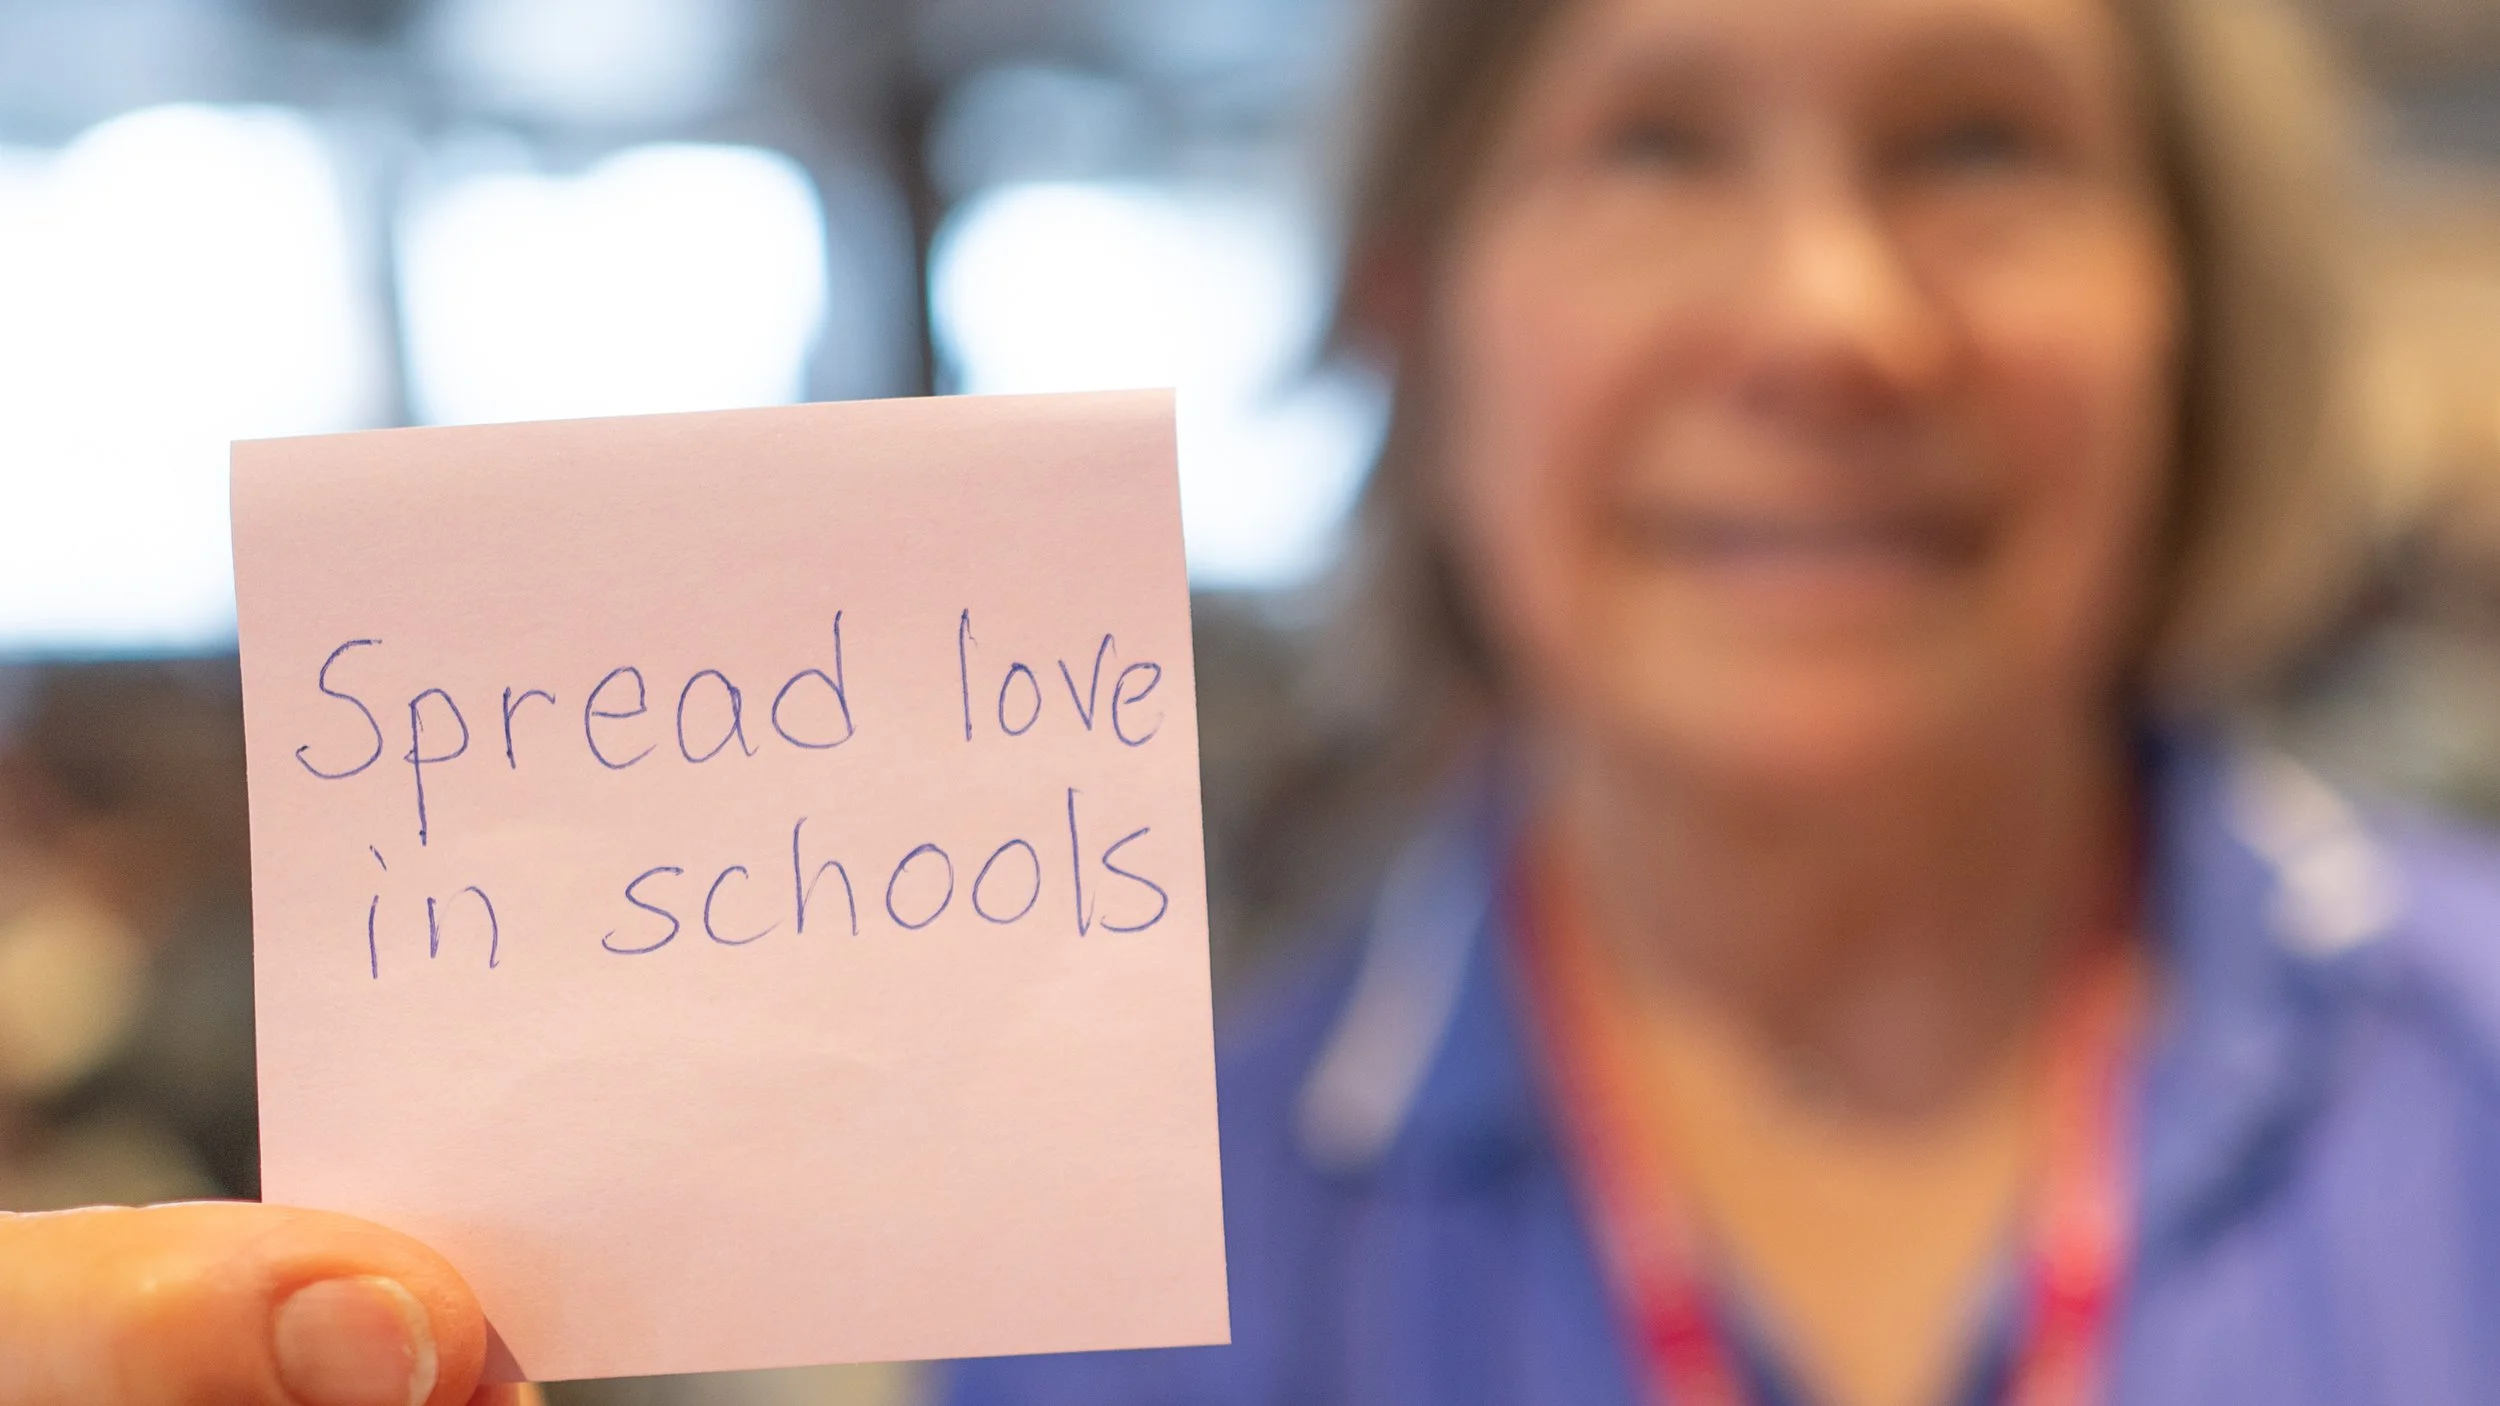 Spread love
in schools